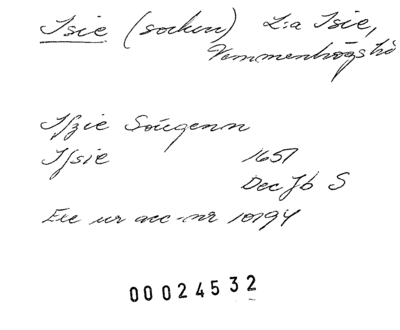 Isie (socken) L:a Isie,
Vemmenhögs hd
Ifzie Sougenn
Ifsie 1651
Dec Jb S
Exc ur acc-nr 10194
00024532